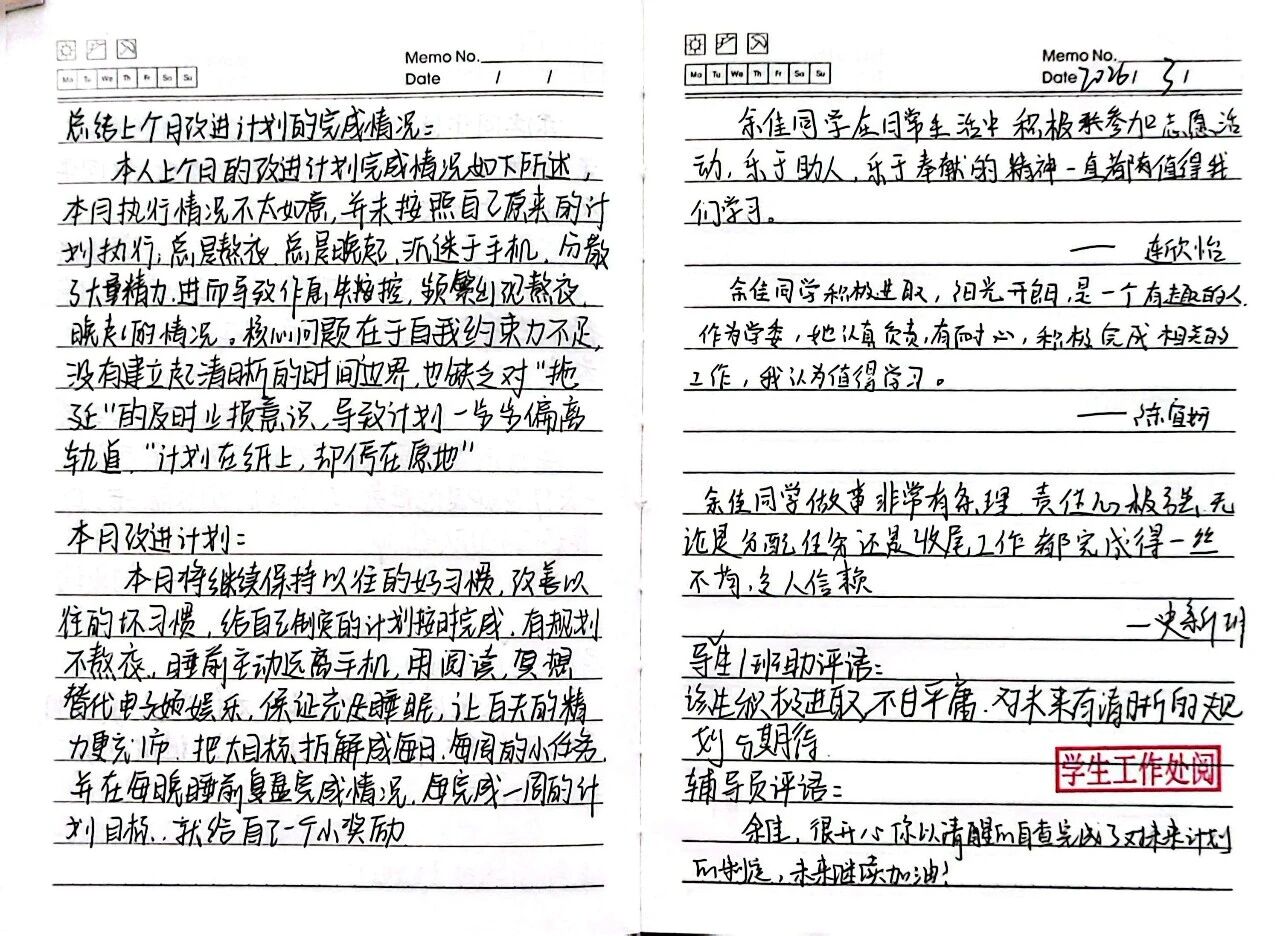 Memo No.
Mo Tu We Th Fr Sa Su
Date / /
总结上个月改进计划的完成情况:
本人上个月的改进计划完成情况如下所述,
本月执行情况不太如意,并未按照自己原来的计
划执行,总是熬夜,总是晚起,沉迷于手机,分散
了大量精力.进而导致作息失控,频繁出现熬夜,
晚起的情况。核心问题在于自我约束力不足,
没有建立起清晰的时间边界,也缺乏对“拖
延”的及时止损意识,导致计划一步步偏离
轨道,“计划在纸上,却停在原地”
本月改进计划:
本月将继续保持以往的好习惯,改善以
往的坏习惯,给自己制定的计划按时完成.有规划
不熬夜。睡前主动远离手机,用阅读,冥想
替代电子娱乐,保证充足睡眠,让白天的精
力更充沛.把大目标拆解成每日、每周的小任务,
并在每晚睡前复盘完成情况,每完成一周的计
划目标..就给自己一个小奖励
Memo No.
Mo Tu We Th Fr Sa Su
Date 2026/ 3/
余佳同学在日常生活中积极参加志愿活
动,乐于助人,乐于奉献的精神一直都值得我
们学习。
—— 连欣怡
余佳同学积极进取,阳光开朗,是一个有趣的人.
作为学委,她认真负责,有耐心,积极完成相关的
工作,我认为值得学习。
—— 陈宜
余佳同学做事非常有条理 责任心极强,无
论是分配任务还是收尾工作都完成得一丝
不苟,令人信赖
—史新
导生/班助评语:
该生积极进取,不甘平庸.对未来有清晰的规
划与期待.
学生工作处阅
辅导员评语:
余佳,很开心你以清醒的自查完成了对未来计划
的制定,未来继续加油!